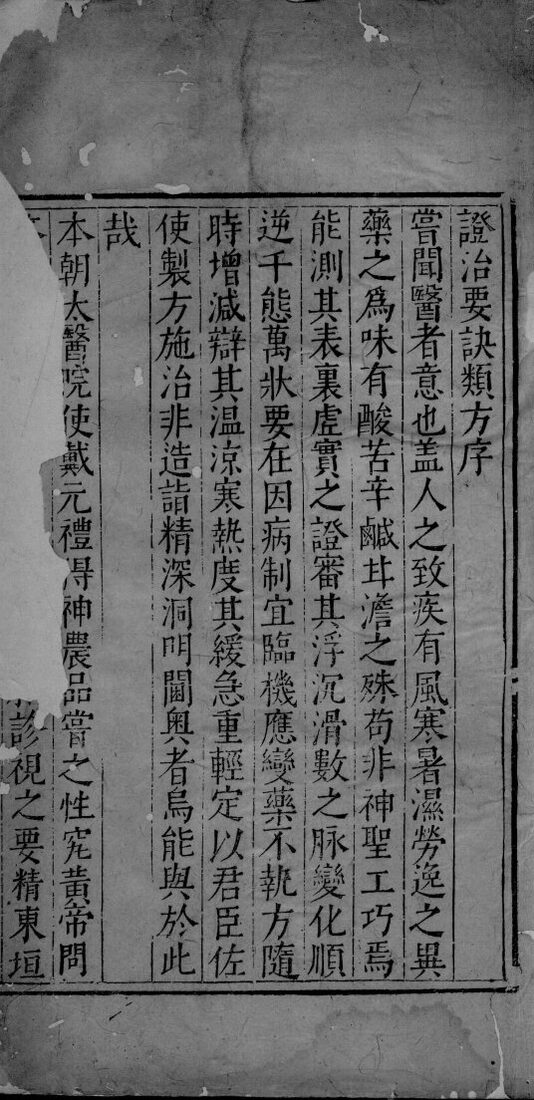 證治要訣類方序
嘗聞醫者意也盖人之致疾有風寒暑濕勞逸之異
藥之爲味有酸苦辛鹹甘澹之殊苟非神聖工巧焉
能測其表裏虛實之證審其浮沉滑數之脉變化順
逆千態萬狀要在因病制宜臨機應變藥不執方隨
時增減辯其温凉寒熱度其緩急重輕定以君臣佐
使製方施治非造詣精深洞明閫奥者烏能與於此
哉
本朝太醫院使戴元禮得神農品嘗之性究黃帝問
診視之要精東垣